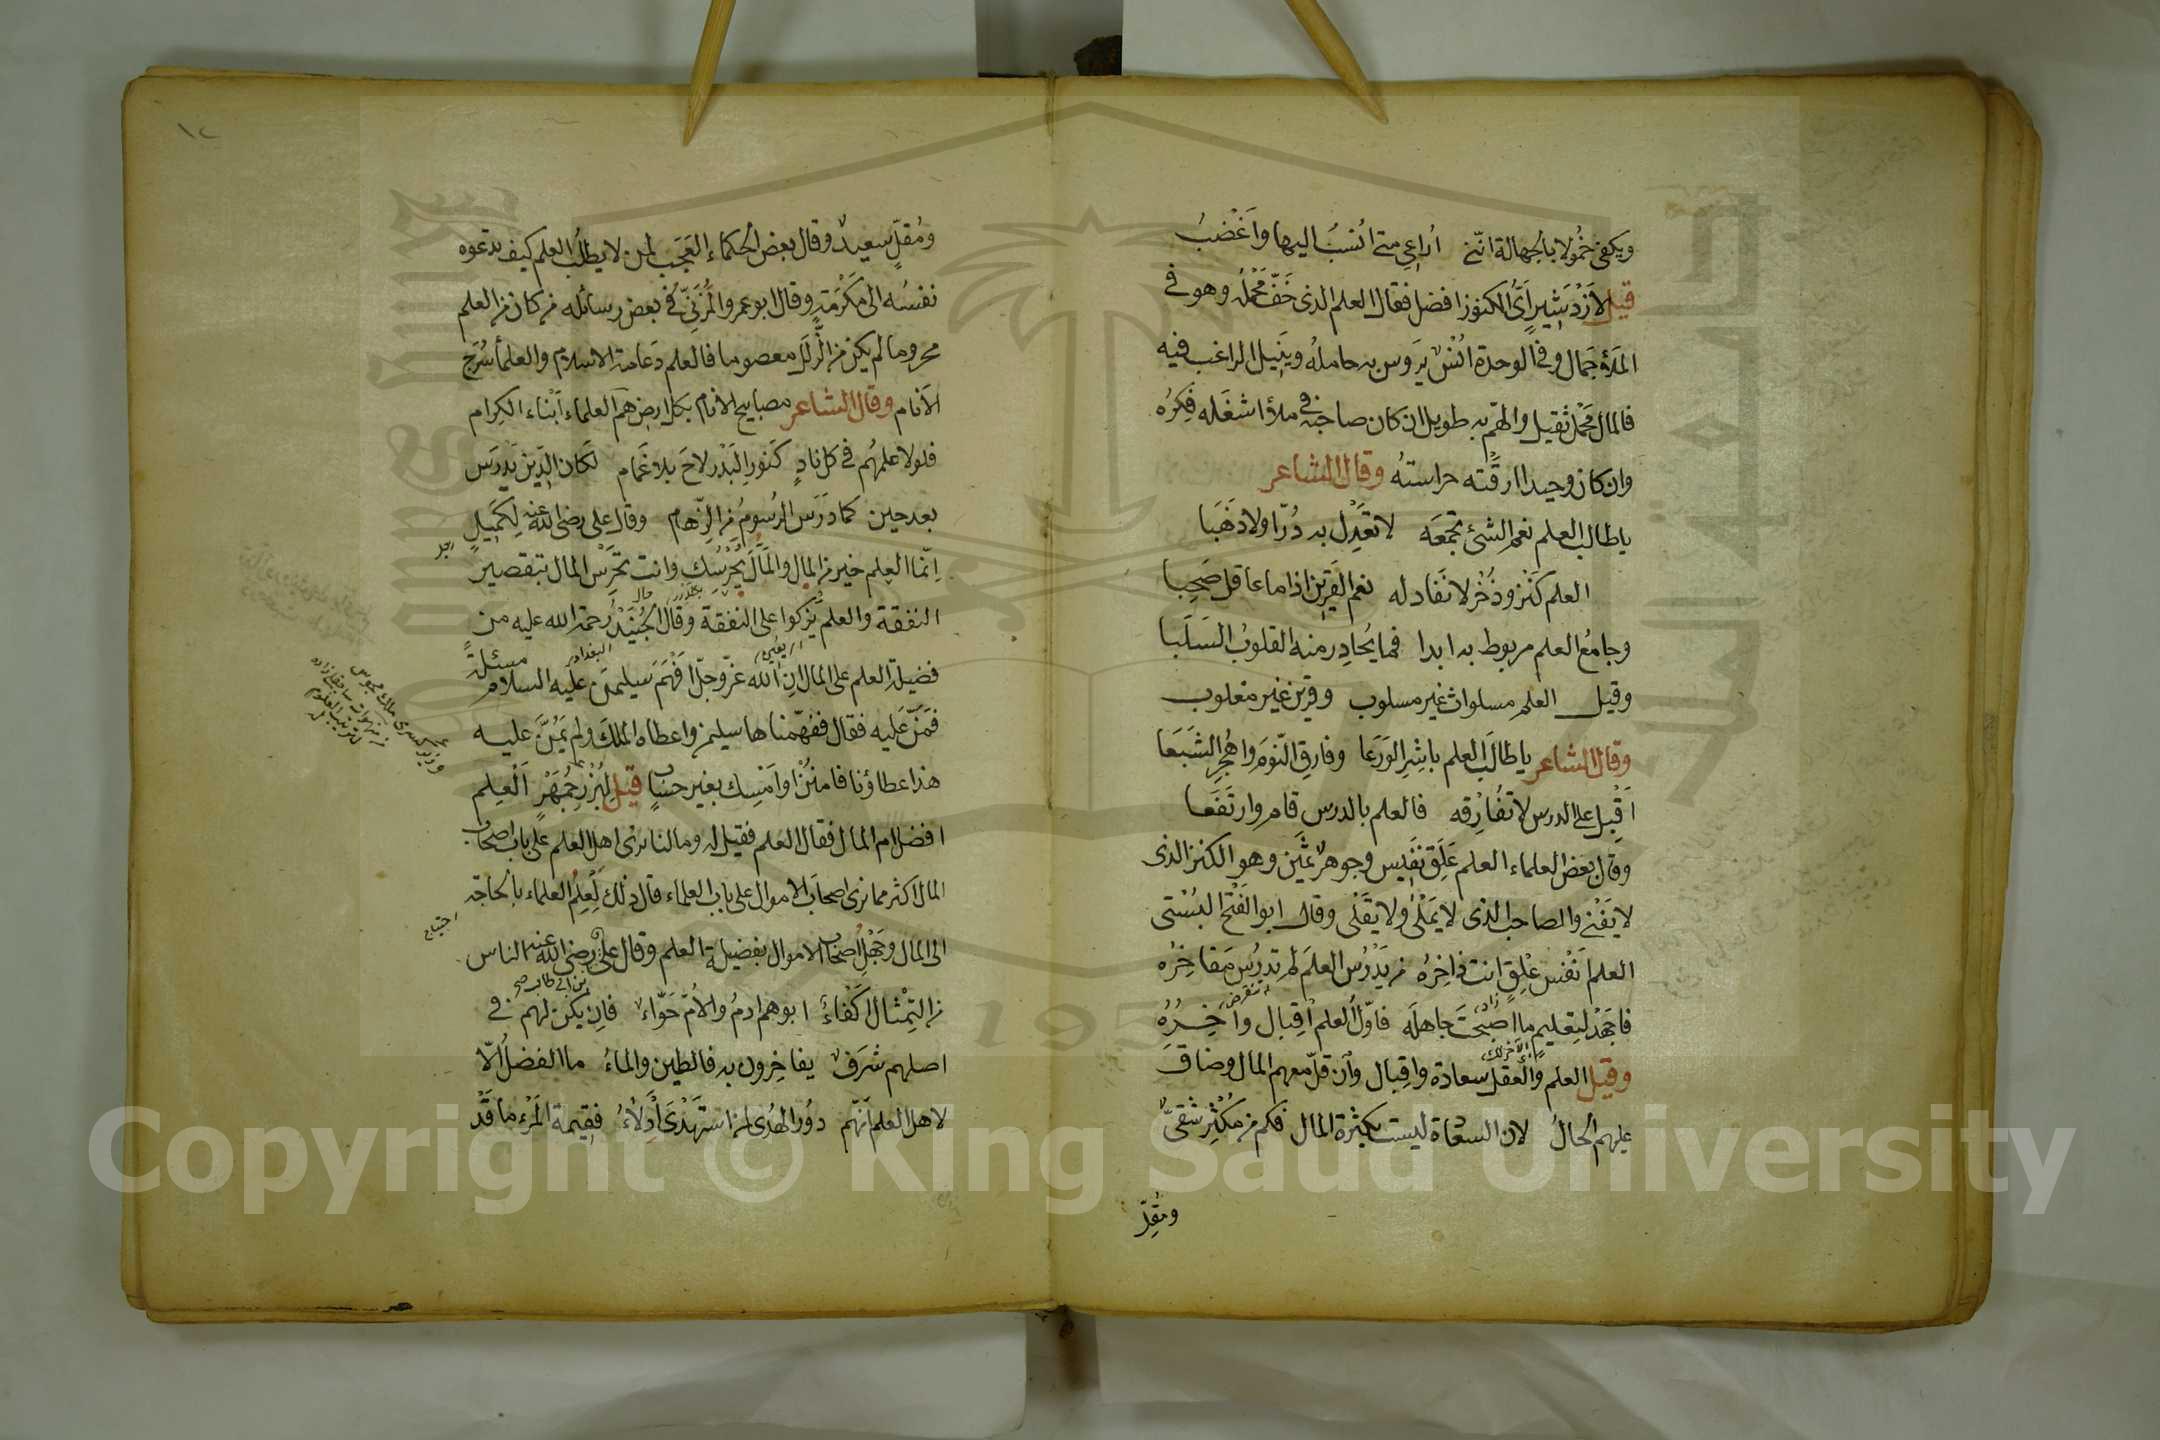 ويكفى خمُولا بالجهالة انّنى اُراعى متى اُنسَبُ اليها واَغْضَبُ
قيل لاَزْدَشِيرِ اَىُّ الكنوز افضل فقال العلم الذى خَفّ مَحْمَلُه وهو فى
الملاء جَمال وفى الوحدة اُنْسٌ يَروس به حامله وينيل الراغب فيه
فالمال مَحْمَلٌ ثقيل والهمّ به طويل ان كان صاحبُه فى ملاءٍ اشغَله فِكرُه
وان كان وحيدا ارقَّته حراستُه وقال الشاعر
يا طالب العلم نعم الشئ تجمَعَه لا تعَدِلْ به دُرّا ولا ذَهَبا
العلم كَنْز وذُخْر لا نَفاد له نعم القَرين اذا ما عاقل صَحِبا
وجامُع العلم مربوط به ابدا فما يُحاذِر منه القلوبُ السَلَبا
وقيل العلم مسلوات غير مسلوب وقرين غير مغلوب
وقال الشاعر يا طالَب العلم باشِر الوَرَعا وفارِق النّومَ واهجُر الشَبَعا
اَقْبِل على الدرس لا تُفارِقه فالعلم بالدرس قام وارتفَعا
وقال بعض العلماء العلم عَلِق نَفَيِس وجوهرٌ ثمَين وهو الكنز الذى
لا يَفْنى والصاحب الذى لا يَمْلى ولا يَقَلى وقال ابو الفَتْح البُسْتى
العلم اَنْفَس عْلِقٍ انت ذاخِرُه من يَدْرُس العلَم لم تدرُس مَفاخِرُه
فاجهَدْ لتعليم ما اصْبَحْتَ جاهلَه فاوّلُ العلم اْقِبال وآخِرُهُ
وقيل العلم والعقل سعادة واقِبال وان قلّ معهم المال وضاقَ
عليهم الحالُ لان السعادة ليست بكثرة المال فكم من مُكْثِرٍ شقىٌّ
ومُقِلّ
١٢
ومُقلٍّ سعيدٌ وقال بعض الحكماء العَجَب لمن لا يطلُب العلم كيف يدعوه
نفسُه الى مَكْرَمَة وقال ابو عمرو المُزَنّى فى بعض رسائله من كان من العلم
محروما لم يكن من الزَّلَل معصوما فالعلم دَعامة الاسلام والعلماء سُرَج
الاَنام وقال الشاعر مصابيح الانام بكل ارض هم العلماء اَبْناء الكِرام
فلولا علمهُم فى كل نادٍ كنَورِ البَدْر لاحَ بلا غَمام لكان الدِّين يدرَس
بعد حين كما دَرَس الرسومُ من الرِّهام وقال على رضى الله عنه لِكُمَيلٍ
اِنّما العِلم خير من المال والمَال يَحْرُسُك وانت تحرَسْ المال تنقصير
النفقة والعلم يَزكوا على النفقة وقال الجُنَيْدُ رحمة الله عليه من
البغدادى
فضيلة العلم على المال ان الله عَزّ وجلّ اَفْهَمَ سيليمَن عليه السلام مسئلةً
فَمَنّ عَليه فقال ففهّمناها سيليمن واعطاه الملك ولم يَمُنَّ عليه
هذا عطاؤنا فامنُنْ او اَمْسِك بغير حساب قيل لبُزْرِجُمُهْرٍ اَلعِلم
افضل ام المال فقال العلم فقيل له وما لنا نرى اهل العلم على باب اصحاب
المال اكثر مما نرى اصحاب الاموال على باب العلماء قال ذلك لِعِلْمِ العلماء بالحاجة
الى المال وجَهْلِ اصْحاب الاموال بفضيلة العلم وقال علىّ رضى الله عنه الناس
بن ابى طالب صح
من التِمْثال اَكْفاءُ ابوهم ادمُ والاُمّ حَوّاءٌ فاِن يكن لهم فى
اصلهم شرَفٌ يفاخِرون به فالطين والماءُ ما الفضلُ الّا
لاهل العلم اَنّهم دوُر الهُدى لمن استَهْدَى اَدِلّاءُ فقِيمة المَرْءِ ما قَدْ